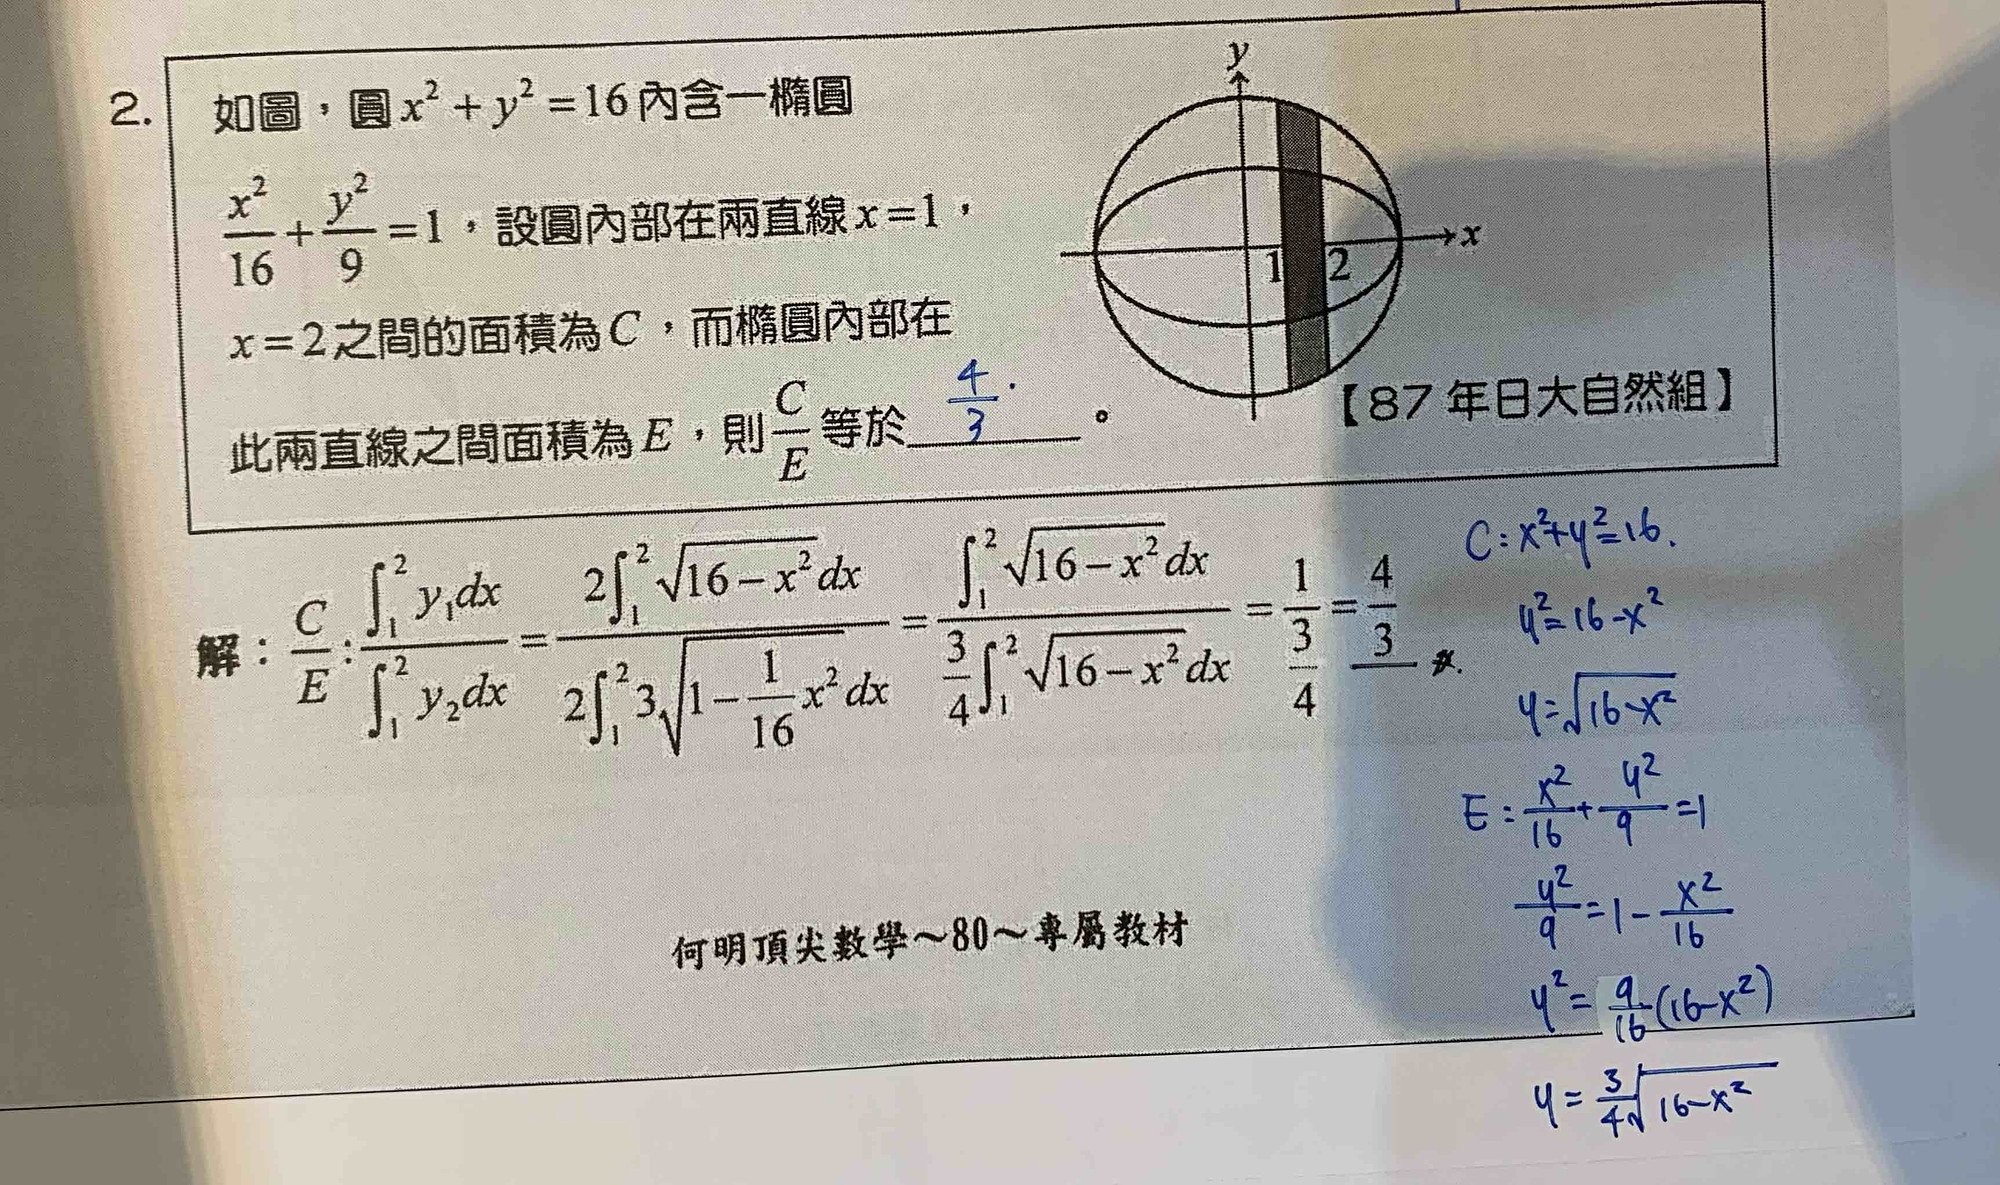 2.
如圖，圓 x² + y² = 16 內含一橢圓
x²/16 + y²/9 = 1，設圓內部在兩直線 x = 1，
x = 2 之間的面積為 C，而橢圓內部在
此兩直線之間面積為 E，則 C/E 等於 4/3 。
【87 年日大自然組】
y
x
1 2
解：C/E : ∫₁² y₁dx / ∫₁² y₂dx = 2∫₁² √(16 − x²) dx / 2∫₁² 3√(1 − 1/16 x²) dx = ∫₁² √(16 − x²) dx / 3/4 ∫₁² √(16 − x²) dx = 1 / (3/4) = 4/3 #.
C: x²+y²=16.
y²=16-x²
y=√(16-x²)
E: x²/16 + y²/9 = 1
y²/9 = 1 - x²/16
y² = 9/16 (16-x²)
y = 3/4 √(16-x²)
何明頂尖數學～80～專屬教材